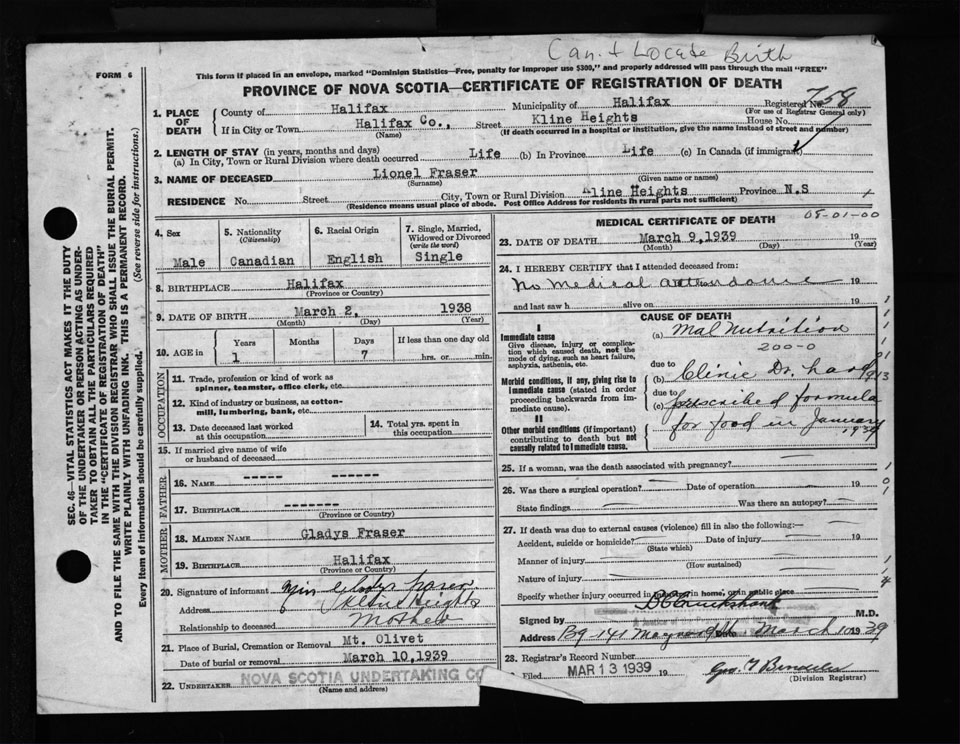 Can't Locate Birth
FORM 6
This form if placed in an envelope, marked "Dominion Statistics—Free, penalty for improper use $300," and properly addressed will pass through the mail "FREE"
PROVINCE OF NOVA SCOTIA—CERTIFICATE OF REGISTRATION OF DEATH
758
1. PLACE OF DEATH
County of Halifax Municipality of Halifax Registered No.
(For use of Registrar General only)
If in City or Town Halifax Co., Street Kline Heights House No.
(Name) (If death occurred in a hospital or institution, give the name instead of street and number)
2. LENGTH OF STAY (in years, months and days)
(a) In City, Town or Rural Division where death occurred Life (b) In Province Life (c) In Canada (if immigrant)
3. NAME OF DECEASED Lionel Fraser
(Surname) (Given name or names)
RESIDENCE No. Street City, Town or Rural Division Kline Heights Province N.S
(Residence means usual place of abode. Post Office Address for residents in rural parts not sufficient)
SEC. 46—VITAL STATISTICS ACT MAKES IT THE DUTY
OF THE UNDERTAKER OR PERSON ACTING AS UNDER-
TAKER TO OBTAIN ALL THE PARTICULARS REQUIRED
IN THE "CERTIFICATE OF REGISTRATION OF DEATH"
AND TO FILE THE SAME WITH THE DIVISION REGISTRAR WHO SHALL ISSUE THE BURIAL PERMIT.
WRITE PLAINLY WITH UNFADING INK. THIS IS A PERMANENT RECORD.
Every item of information should be carefully supplied. (See reverse side for instructions.)
4. Sex
Male
5. Nationality
(Citizenship)
Canadian
6. Racial Origin
English
7. Single, Married,
Widowed or Divorced
(write the word)
Single
8. BIRTHPLACE Halifax
(Province or Country)
9. DATE OF BIRTH March 2, 1938
(Month) (Day) (Year)
10. AGE in
Years Months Days If less than one day old
1 7 hrs. or min.
OCCUPATION
11. Trade, profession or kind of work as
spinner, teamster, office clerk, etc.
12. Kind of industry or business, as cotton-
mill, lumbering, bank, etc.
13. Date deceased last worked
at this occupation
14. Total yrs. spent in
this occupation
15. If married give name of wife
or husband of deceased
FATHER
16. NAME ----- -----
17. BIRTHPLACE ------
(Province or Country)
MOTHER
18. MAIDEN NAME Gladys Fraser
19. BIRTHPLACE Halifax
(Province or Country)
20. Signature of informant Gladys Fraser
Address Kline Heights
Relationship to deceased Mother
21. Place of Burial, Cremation or Removal Mt. Olivet
Date of burial or removal March 10,1939
22. UNDERTAKER NOVA SCOTIA UNDERTAKING CO
(Name and address)
MEDICAL CERTIFICATE OF DEATH
09-01-00
23. DATE OF DEATH March 9,1939 19
(Month) (Day) (Year)
24. I HEREBY CERTIFY that I attended deceased from:
No medical attendance 19
and last saw h alive on 19
CAUSE OF DEATH
I
Immediate cause
Give disease, injury or complica-
tion which caused death, not the
mode of dying, such as heart failure,
asphyxia, asthenia, etc.
(a) Mal Nutrition
200-0
due to
Morbid conditions, if any, giving rise to
immediate cause (stated in order
proceeding backwards from im-
mediate cause).
(b) Clinic Dr. had
due to
(c) prescribed formula
for food in January
1939
II
Other morbid conditions (if important)
contributing to death but not
causally related to immediate cause.
25. If a woman, was the death associated with pregnancy?
26. Was there a surgical operation? Date of operation 19
State findings Was there an autopsy?
27. If death was due to external causes (violence) fill in also the following:—
Accident, suicide or homicide? Date of injury 19
(State which)
Manner of injury
(How sustained)
Nature of injury
Specify whether injury occurred in industry, in home, or in public place
Signed by M.D.
Address March 10 1939
28. Registrar's Record Number
Filed MAR 13 1939 19
(Division Registrar)